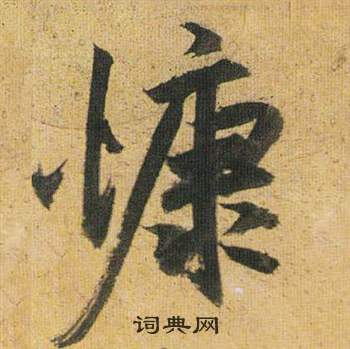 慷
词典网